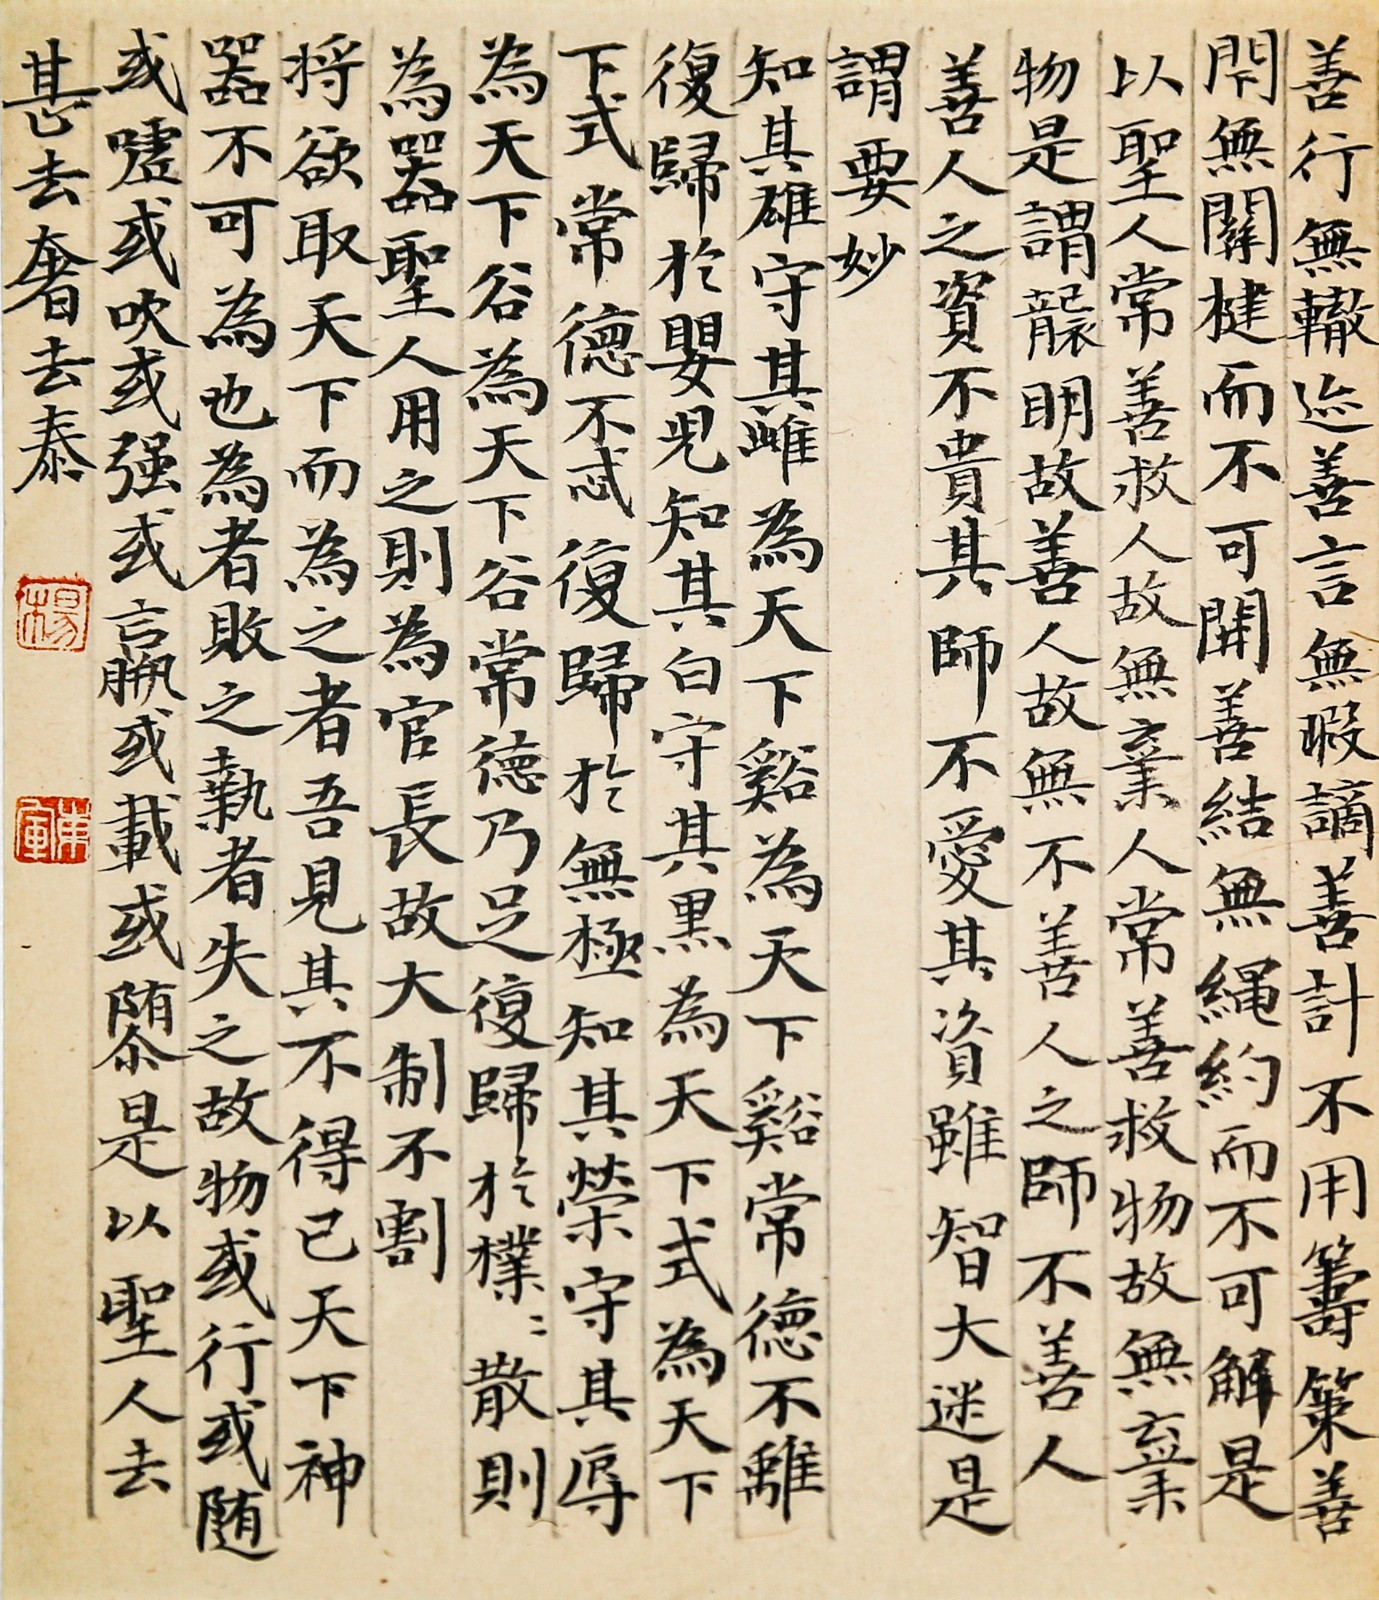 善行無轍迹善言無瑕謫善計不用籌策善
閇無關楗而不可開善結無繩約而不可解是
以聖人常善救人故無棄人常善救物故無棄
物是謂襲明故善人故無不善人之師不善人
善人之資不貴其師不愛其資雖智大迷是
謂要妙
知其雄守其雌為天下谿為天下谿常德不離
復歸於嬰児知其白守其黒為天下式為天下
下式常德不忒復歸於無極知其榮守其辱
為天下谷為天下谷常德乃足復歸於樸〻散則
為器聖人用之則為官長故大制不割
将欲取天下而為之者吾見其不得已天下神
器不可為也為者敗之執者失之故物或行或随
或噓或吹或强或羸或載或隳是以聖人去
甚去奢去泰
楊